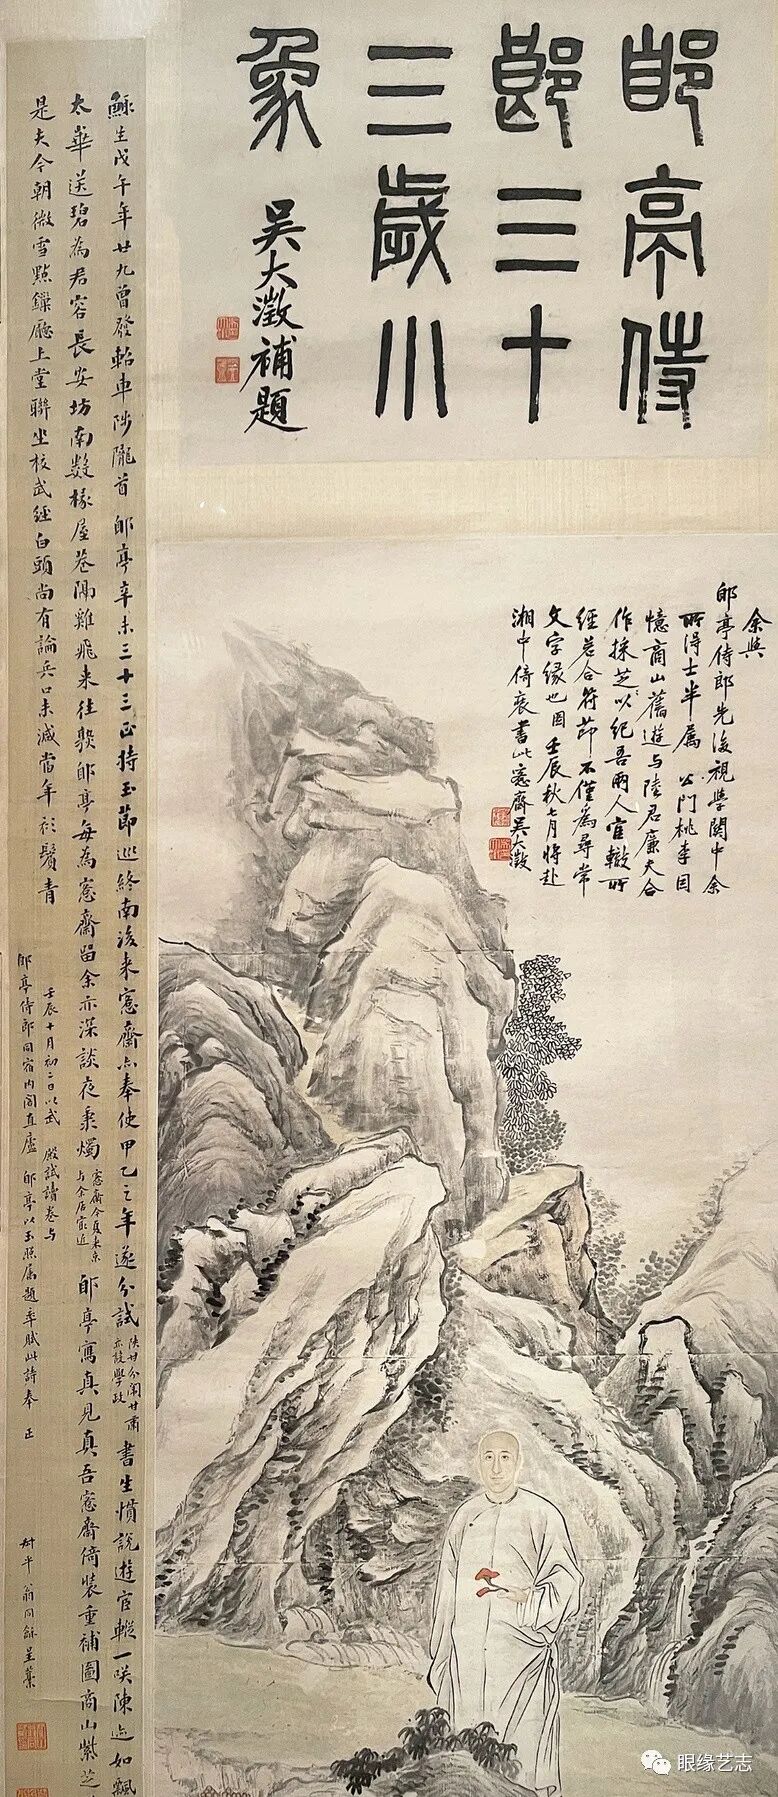 郋亭侍
郎三十
三歲小
象
吳大澂補題
余與
郋亭侍郎先後視學關中余
所得士半屬 公門桃李因
憶商山舊遊与陸君廉夫合
作採芝以紀吾兩人宦轍所
經若合符節不僅爲尋常
文字緣也因 壬辰秋七月將赴
湘中倚裝書此愙齋吳大澂
龢生戊午年廿九曾發軺車陟隴首 郋亭辛未三十三正持玉節巡終南後来愙齋亦奉使甲乙之年遂分試 陝甘分闈甘肅亦設學政 書生慣說遊宦轍一咲陳迹如飄
太華送碧為君容長安坊南數椽屋巷隔雞飛来往數郋亭每為愙齋留余亦深談夜秉燭 愙齋今夏来京与余居最近 郋亭寫真見真吾愙齋倚裝重補圖商山紫芝
是夫今朝微雪點鏁廳上堂聯坐校武經白頭尚有論兵口未減當年衫鬢青
壬辰十月初二日以武 殿試讀卷与
郋亭侍郎同宿内閣直廬 郋亭以玉照属題率賦此詩奉 正
叔平翁同龢呈藁
眼缘艺志